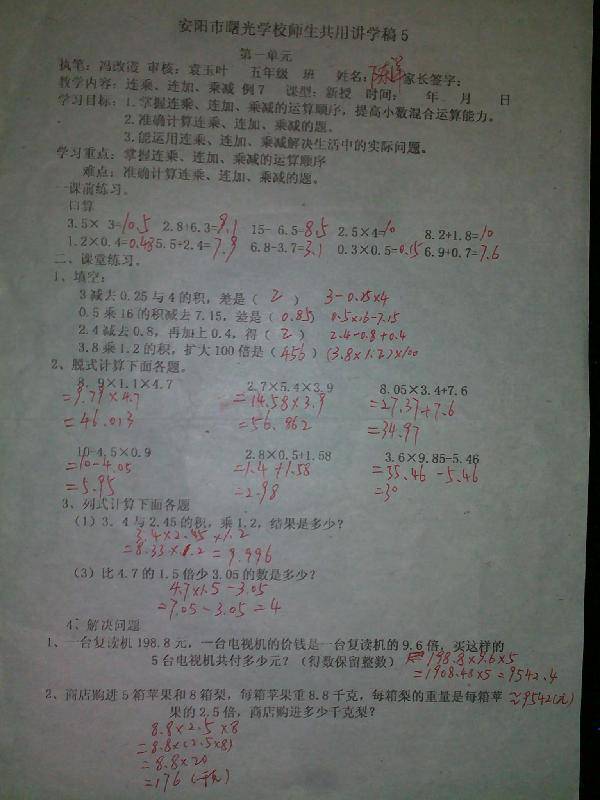 安阳市曙光学校师生共用讲学稿5
第一单元
执笔：冯改霞 审核：袁玉叶 五年级 班 姓名： 家长签字：
教学内容：连乘、连加、乘减 例7 课型：新授 时间： 年 月 日
学习目标：1.掌握连乘、连加、乘减的运算顺序，提高小数混合运算能力。
2.准确计算连乘、连加、乘减的题。
3.能运用连乘、连加、乘减解决生活中的实际问题。
学习重点：掌握连乘、连加、乘减的运算顺序
难点：准确计算连乘、连加、乘减的题。
一课前练习。
口算
3.5× 3=10.5 2.8+6.3=9.1 15- 6.5=8.5 2.5×4=10 8.2+1.8=10
1.2×0.4=0.48 5.5+2.4=7.9 6.8-3.7=3.1 0.3×0.5=0.15 6.9+0.7=7.6
二、课堂练习。
1、填空：
3减去0.25与4的积，差是（ 2 ） 3-0.25×4
0.5乘16的积减去7.15，差是（ 0.85 ） 0.5×16-7.15
2.4减去0.8，再加上0.4，得（ 2 ） 2.4-0.8+0.4
3.8乘1.2的积，扩大100倍是（ 456 ） (3.8×1.2)×100
2、脱式计算下面各题。
8.9×1.1×4.7 2.7×5.4×3.9 8.05×3.4+7.6
=9.79×4.7 =14.58×3.9 =27.37+7.6
=46.013 =56.862 =34.97
10-4.5×0.9 2.8×0.5+1.58 3.6×9.85-5.46
=10-4.05 =1.4+1.58 =35.46-5.46
=5.95 =2.98 =30
3、列式计算下面各题
（1）3.4与2.45的积，乘1.2，结果是多少？
3.4×2.45×1.2
=8.33×1.2=9.996
（3）比4.7的1.5倍少3.05的数是多少？
4.7×1.5-3.05
=7.05-3.05=4
4、解决问题
1、一台复读机198.8元，一台电视机的价钱是一台复读机的9.6倍，买这样的
5台电视机共付多少元？（得数保留整数） 198.8×9.6×5
=1908.48×5=9542.4
≈9542(元)
2、商店购进5箱苹果和8箱梨，每箱苹果重8.8千克，每箱梨的重量是每箱苹
果的2.5倍，商店购进多少千克梨？
8.8×2.5×8
=8.8×(2.5×8)
=8.8×20
=176(千克)